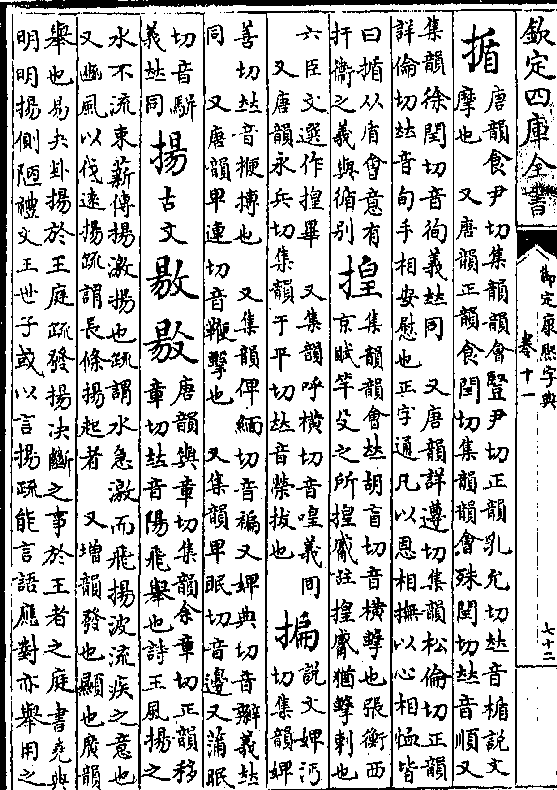 欽定四庫全書
御定康熙字典
卷十一
七十二
揗
唐韻食尹切集韻韻會豎尹切正韻乳允切𠀤音楯說文
摩也　又唐韻正韻食閏切集韻韻會殊閏切𠀤音順又
集韻徐閏切音徇義𠀤同　又唐韻詳遵切集韻松倫切正韻
詳倫切𠀤音旬手相安慰也正字通凡以恩相撫以心相恤皆
曰揗从盾會意有
扞衞之義與循別
揘
集韻韻會𠀤胡盲切音橫擊也張衡西
京賦竿殳之所揘觱註揘觱猶擊刺也
六臣文選作揘畢　又集韻呼橫切音喤義同
又唐韻永兵切集韻于平切𠀤音榮拔也
揙
說文婢沔
切集韻婢
善切𠀤音楩搏也　又集韻俾緬切音褊又婢典切音辮義𠀤
同　又唐韻卑連切音鞭擊也　又集韻卑眠切音邊又蒲眠
切音騈
義𠀤同
揚古文敭
唐韻與章切集韻余章切正韻移
章切𠀤音陽飛舉也詩王風揚之
水不流束薪傳揚激揚也疏謂水急激而飛揚波流疾之意也
又豳風以伐遠揚疏謂長條揚起者　又增韻發也顯也廣韻
舉也易夬卦揚於王庭疏發揚決斷之事於王者之庭書堯典
明明揚側陋禮文王世子或以言揚疏能言語應對亦舉用之